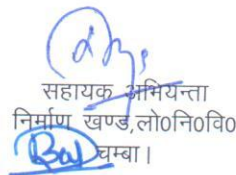 सहायक अभियन्ता
निर्माण खण्ड,लो0नि0वि0
चम्बा।